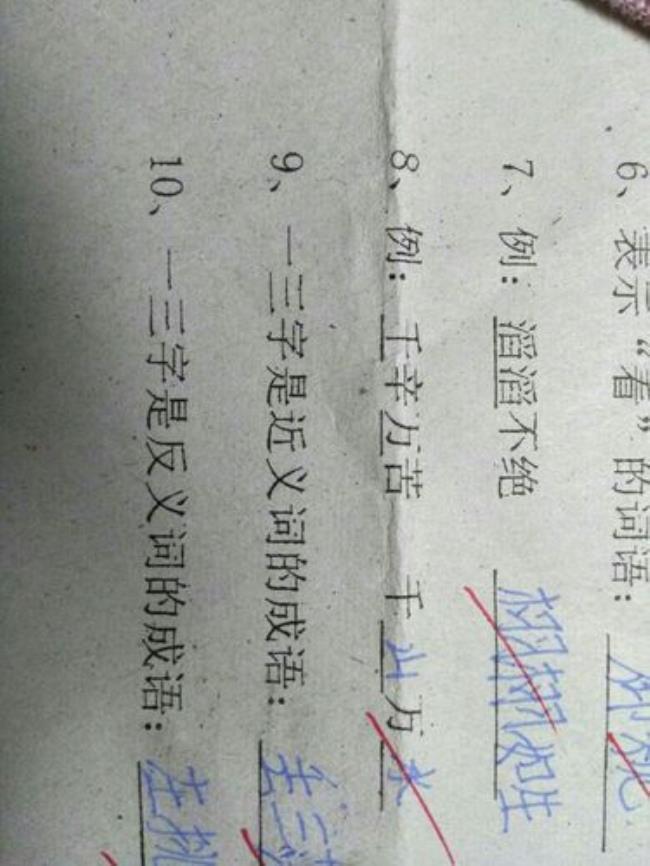 6、表示“看”的词语：仰视
7、例：滔滔不绝 栩栩如生
8、例：千辛万苦 千山万水
9、一三字是近义词的成语：
10、一三字是反义词的成语：左